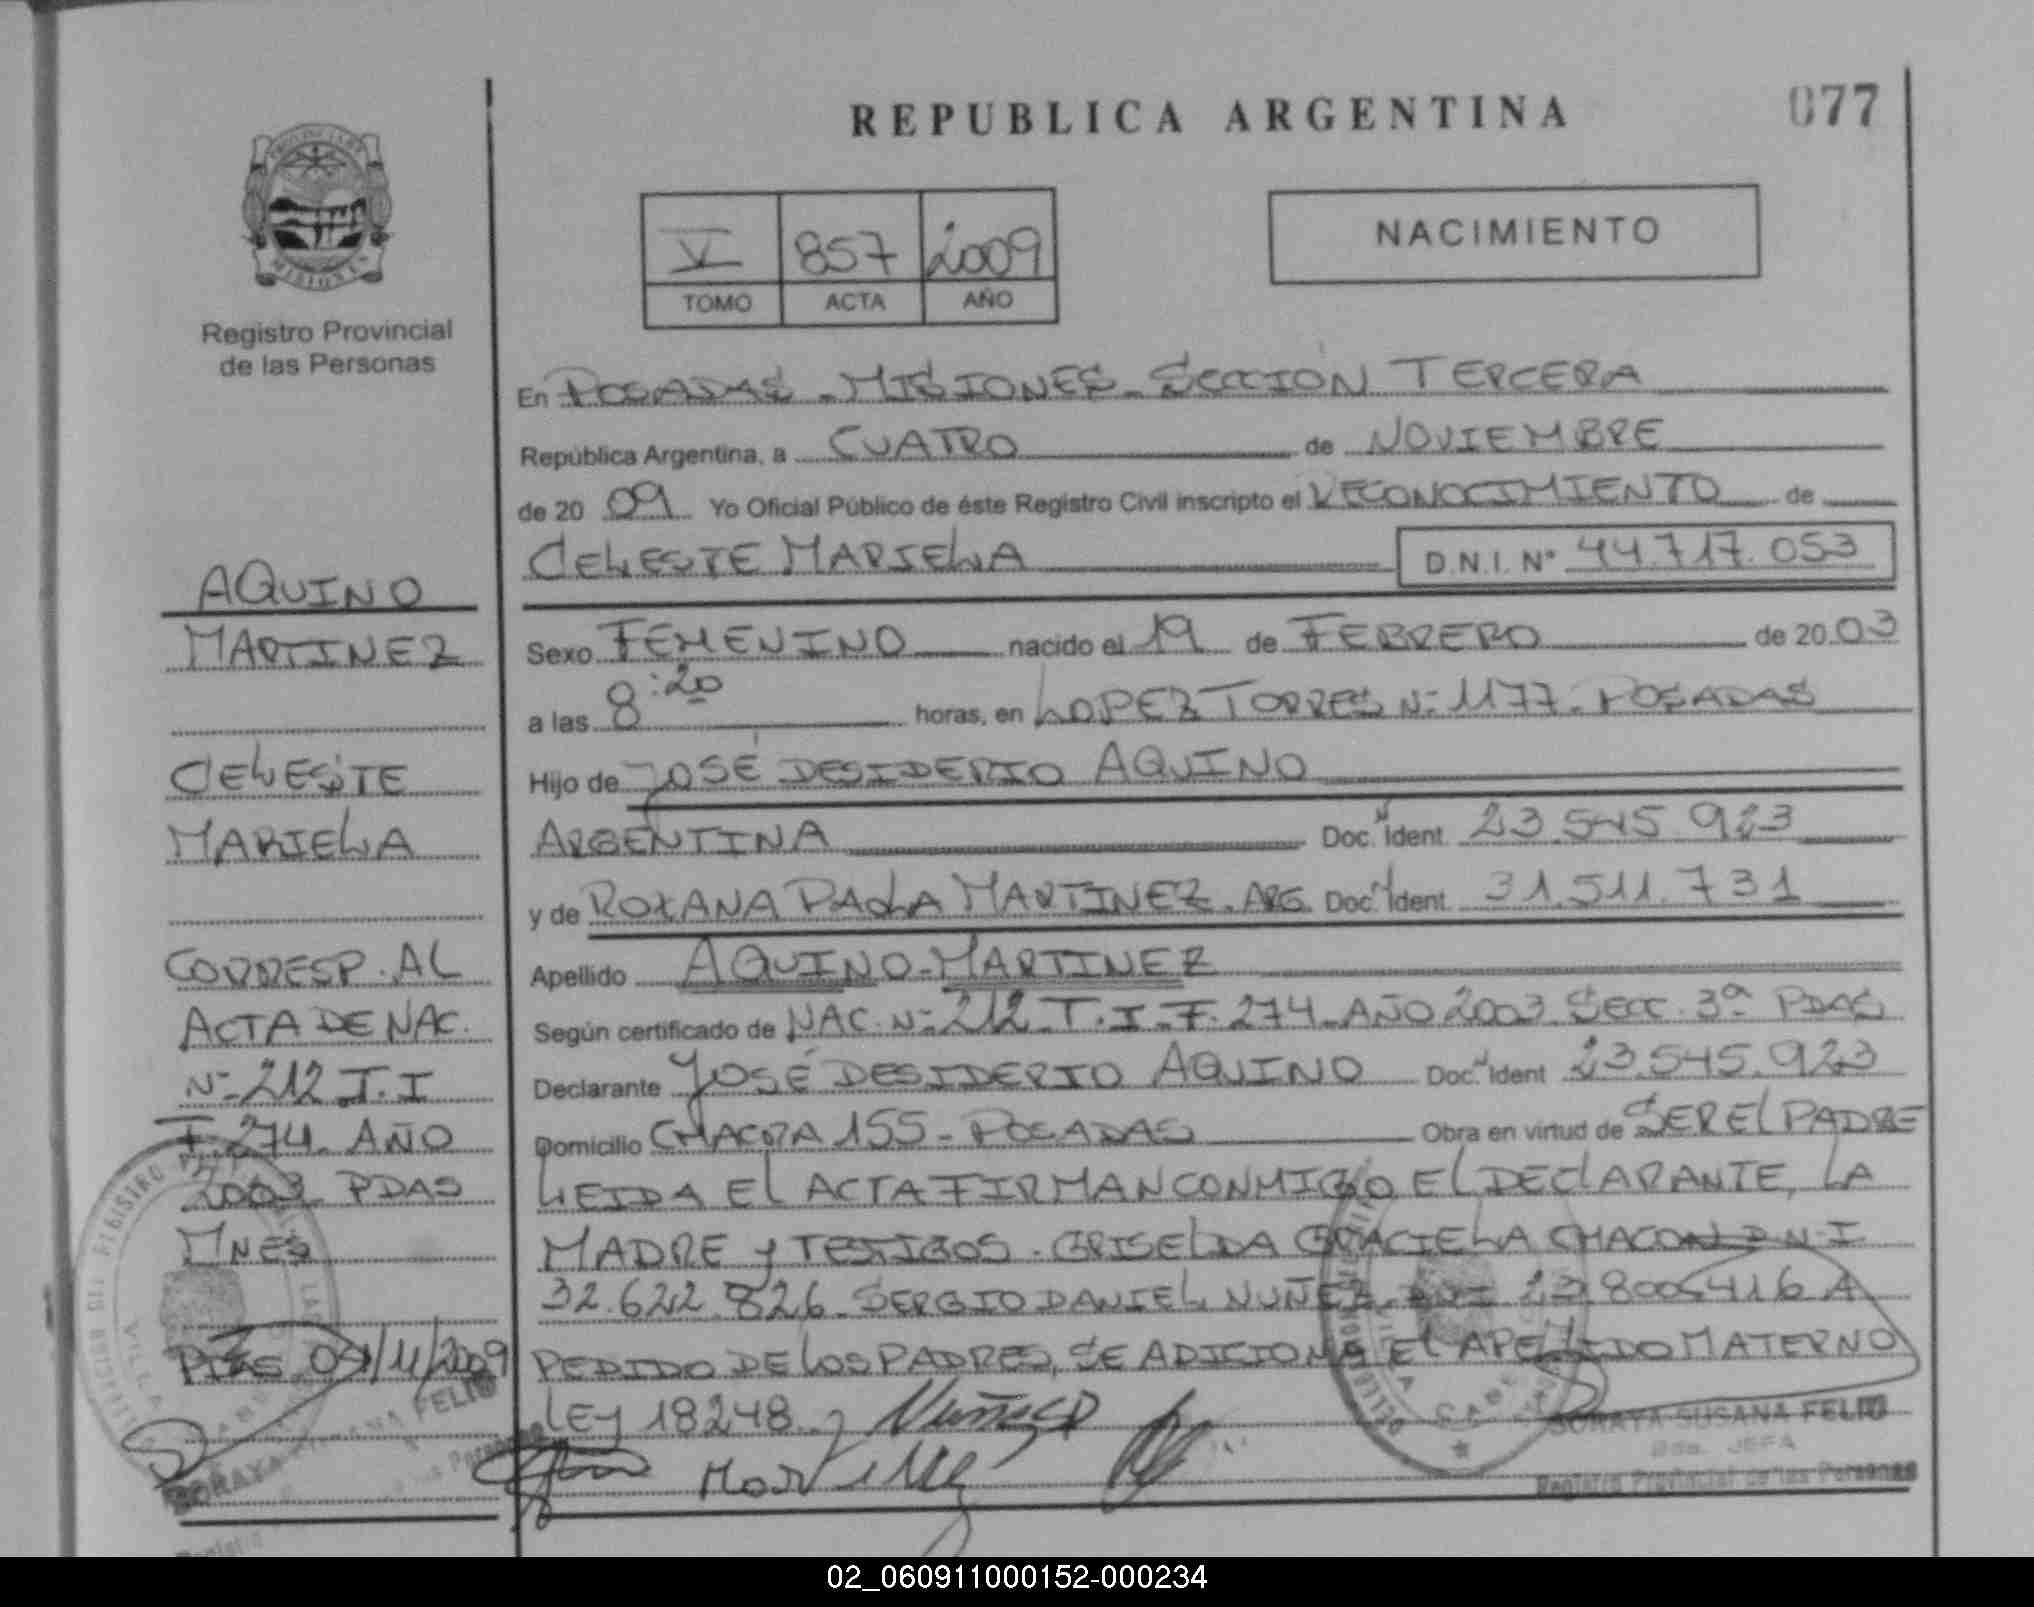 REPUBLICA ARGENTINA
077
V 857 2009
TOMO ACTA AÑO
NACIMIENTO
PROVINCIA DE
MISIONES
Registro Provincial
de las Personas
En POSADAS - MISIONES - SECCIÓN TERCERA
República Argentina, a CUATRO de NOVIEMBRE
de 20 09 Yo Oficial Público de éste Registro Civil inscripto el RECONOCIMIENTO de
CELESTE MARIELA D.N.I. Nº 44.717.053
Sexo FEMENINO nacido el 19 de FEBRERO de 20 03
a las 8:20 horas, en LOPEZ TORRES Nº 1177 - POSADAS
Hijo de JOSÉ DESIDERIO AQUINO
ARGENTINA Doc. Ident. 23.545.923
y de ROXANA PAOLA MARTINEZ - ARG. Doc. Ident. 31.511.731
Apellido AQUINO - MARTINEZ
Según certificado de NAC. Nº 212 - T. I - F. 274 - AÑO 2003 SECC. 3ª PDAS
Declarante JOSÉ DESIDERIO AQUINO Doc. Ident 23.545.923
Domicilio CHACRA 155 - POSADAS Obra en virtud de SER EL PADRE
LEIDA EL ACTA FIRMAN CONMIGO EL DECLARANTE, LA
MADRE y TESTIGOS. GRISELDA GRACIELA CHACON D.N.I
32.622.826 - SERGIO DANIEL NUÑEZ - DNI 23.800.416 A
PEDIDO DE LOS PADRES, SE ADICIONA EL APELLIDO MATERNO
LEY 18248.
Martinez
SORAYA SUSANA FELIU
JEFA
Registro Provincial de las Personas
AQUINO
MARTINEZ
CELESTE
MARIELA
CORRESP. AL
ACTA DE NAC.
Nº 212 T. I
F. 274 - AÑO
2003 PDAS
MNES
PDAS 04/11/2009
SORAYA SUSANA FELIU
02_060911000152-000234